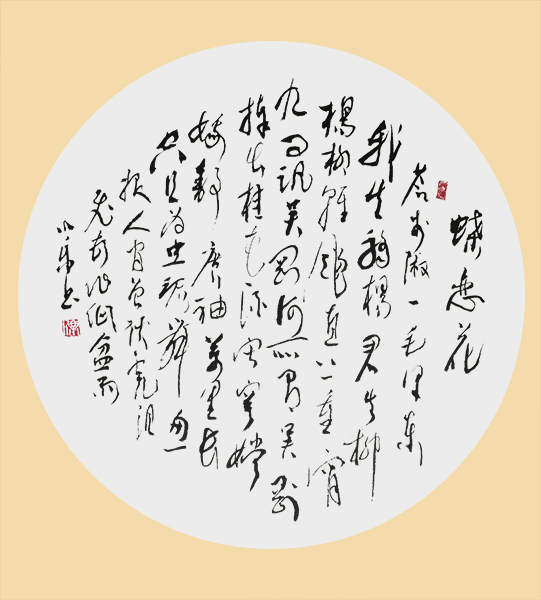 蝶恋花
答李淑一毛泽东
我失骄楊君失柳
楊柳轻飏直上重霄
九问讯吴刚何所有吴刚
捧出桂花酒寂寞嫦
娥舒广袖万里长
空且为忠魂舞忽
报人间曾伏虎泪
飞顿作倾盆雨